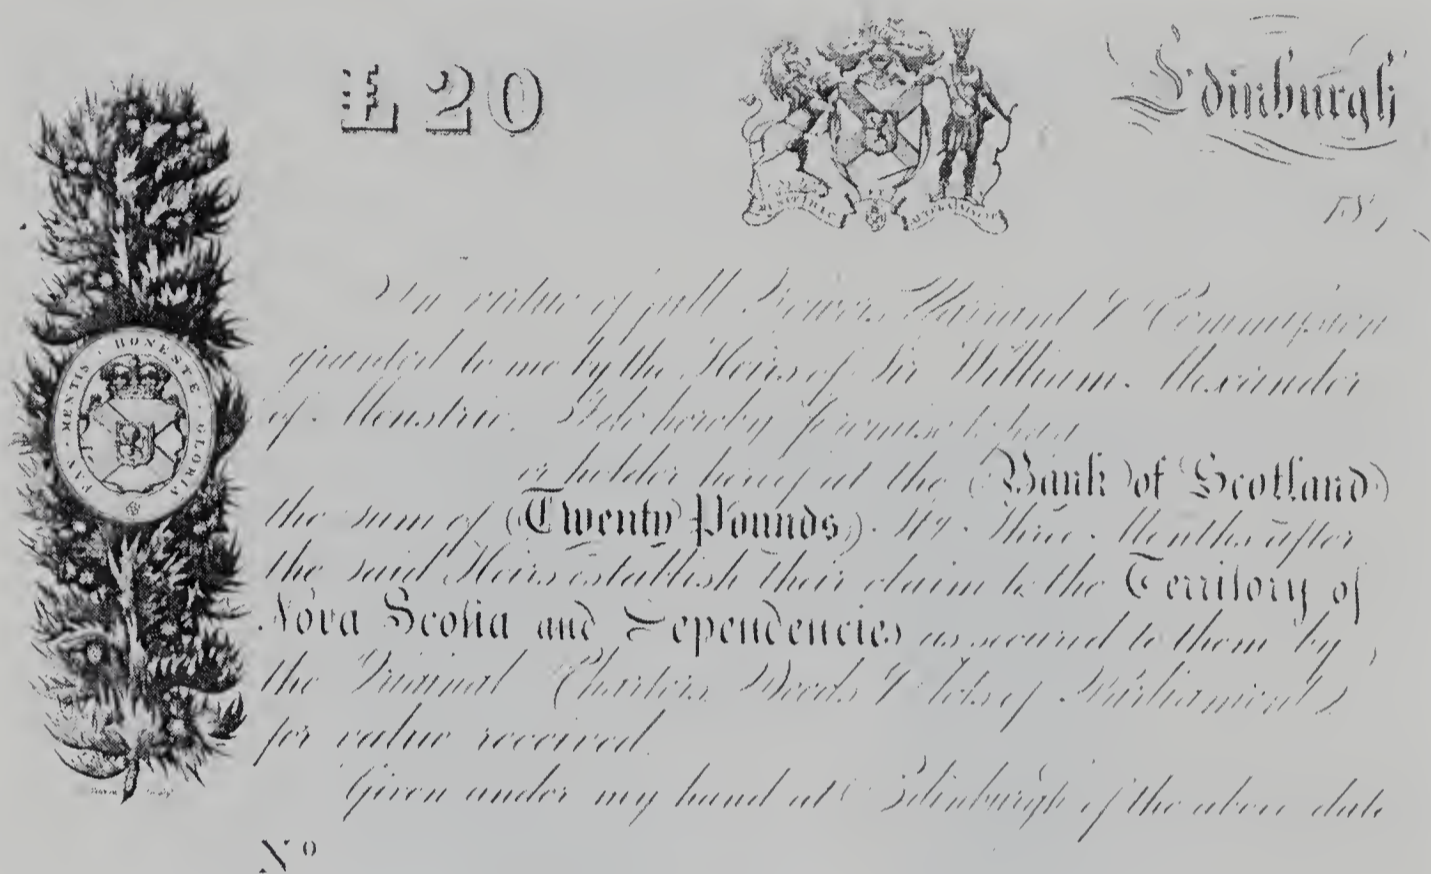 £20
Edinburgh
18
In virtue of full Powers Warrant & Commission
granted to me by the Heirs of Sir William Alexander
of Menstrie, I do hereby promise to pay
or holder hereof at the Bank of Scotland
the sum of Twenty Pounds Stg. Three Months after
the said Heirs establish their claim to the Territory of
Nova Scotia and Dependencies as secured to them by
the Original Charters Deeds & Acts of Parliament
for value received.
Given under my hand at Edinburgh of the above date
No
FAX · MENTIS · HONESTE · GLORIA